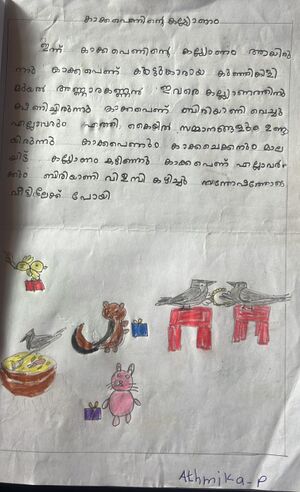 കാക്കപെണിന്റെ കല്ല്യാണം
ഇന്ന് കാക്കപെണിന്റെ കല്ല്യാണം ആയിരു
ന്നു കാക്കപെണ് കൂട്ടുകാരായ കുഞ്ഞികിളി
മുയൽ അണ്ണാറകണ്ണൻ ഇവരെ കല്ല്യാണത്തിന്
ക്ഷണിച്ചിരുന്നു കാക്കപെണ് ബിരിയാണി വെച്ചു
എല്ലാവരും എത്തി കൈയിൽ സമ്മാനങ്ങളും ഉണ്ടാ
യിരുന്നു കാക്കപെണും കാക്കചെക്കനും മാല
യിട്ട് കല്ല്യാണം കഴിഞ്ഞു കാക്കപെണ് എല്ലാവർ
ക്കും ബിരിയാണി വിളമ്പി കഴിച്ചു സന്തോഷത്തോടെ
വീട്ടിലേക്ക് പോയി
Athmika-P